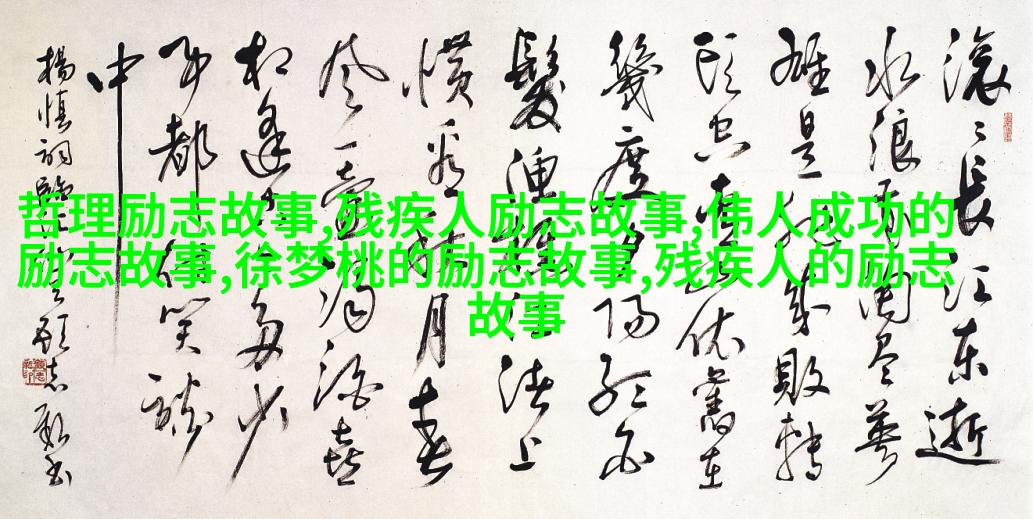 哲理励志故事,残疾人励志故事,伟人成功的
励志故事,徐梦桃的励志故事,残疾人的励志
故事
滚〻長江东逝
水浪花淘尽英
雄是非成敗轉
头空青山依舊在
幾度夕阳红白
髮渔樵江渚上
惯看秋月春
风一壶浊酒喜
相逢古今多少
事都付笑谈
中
楊慎词临江仙